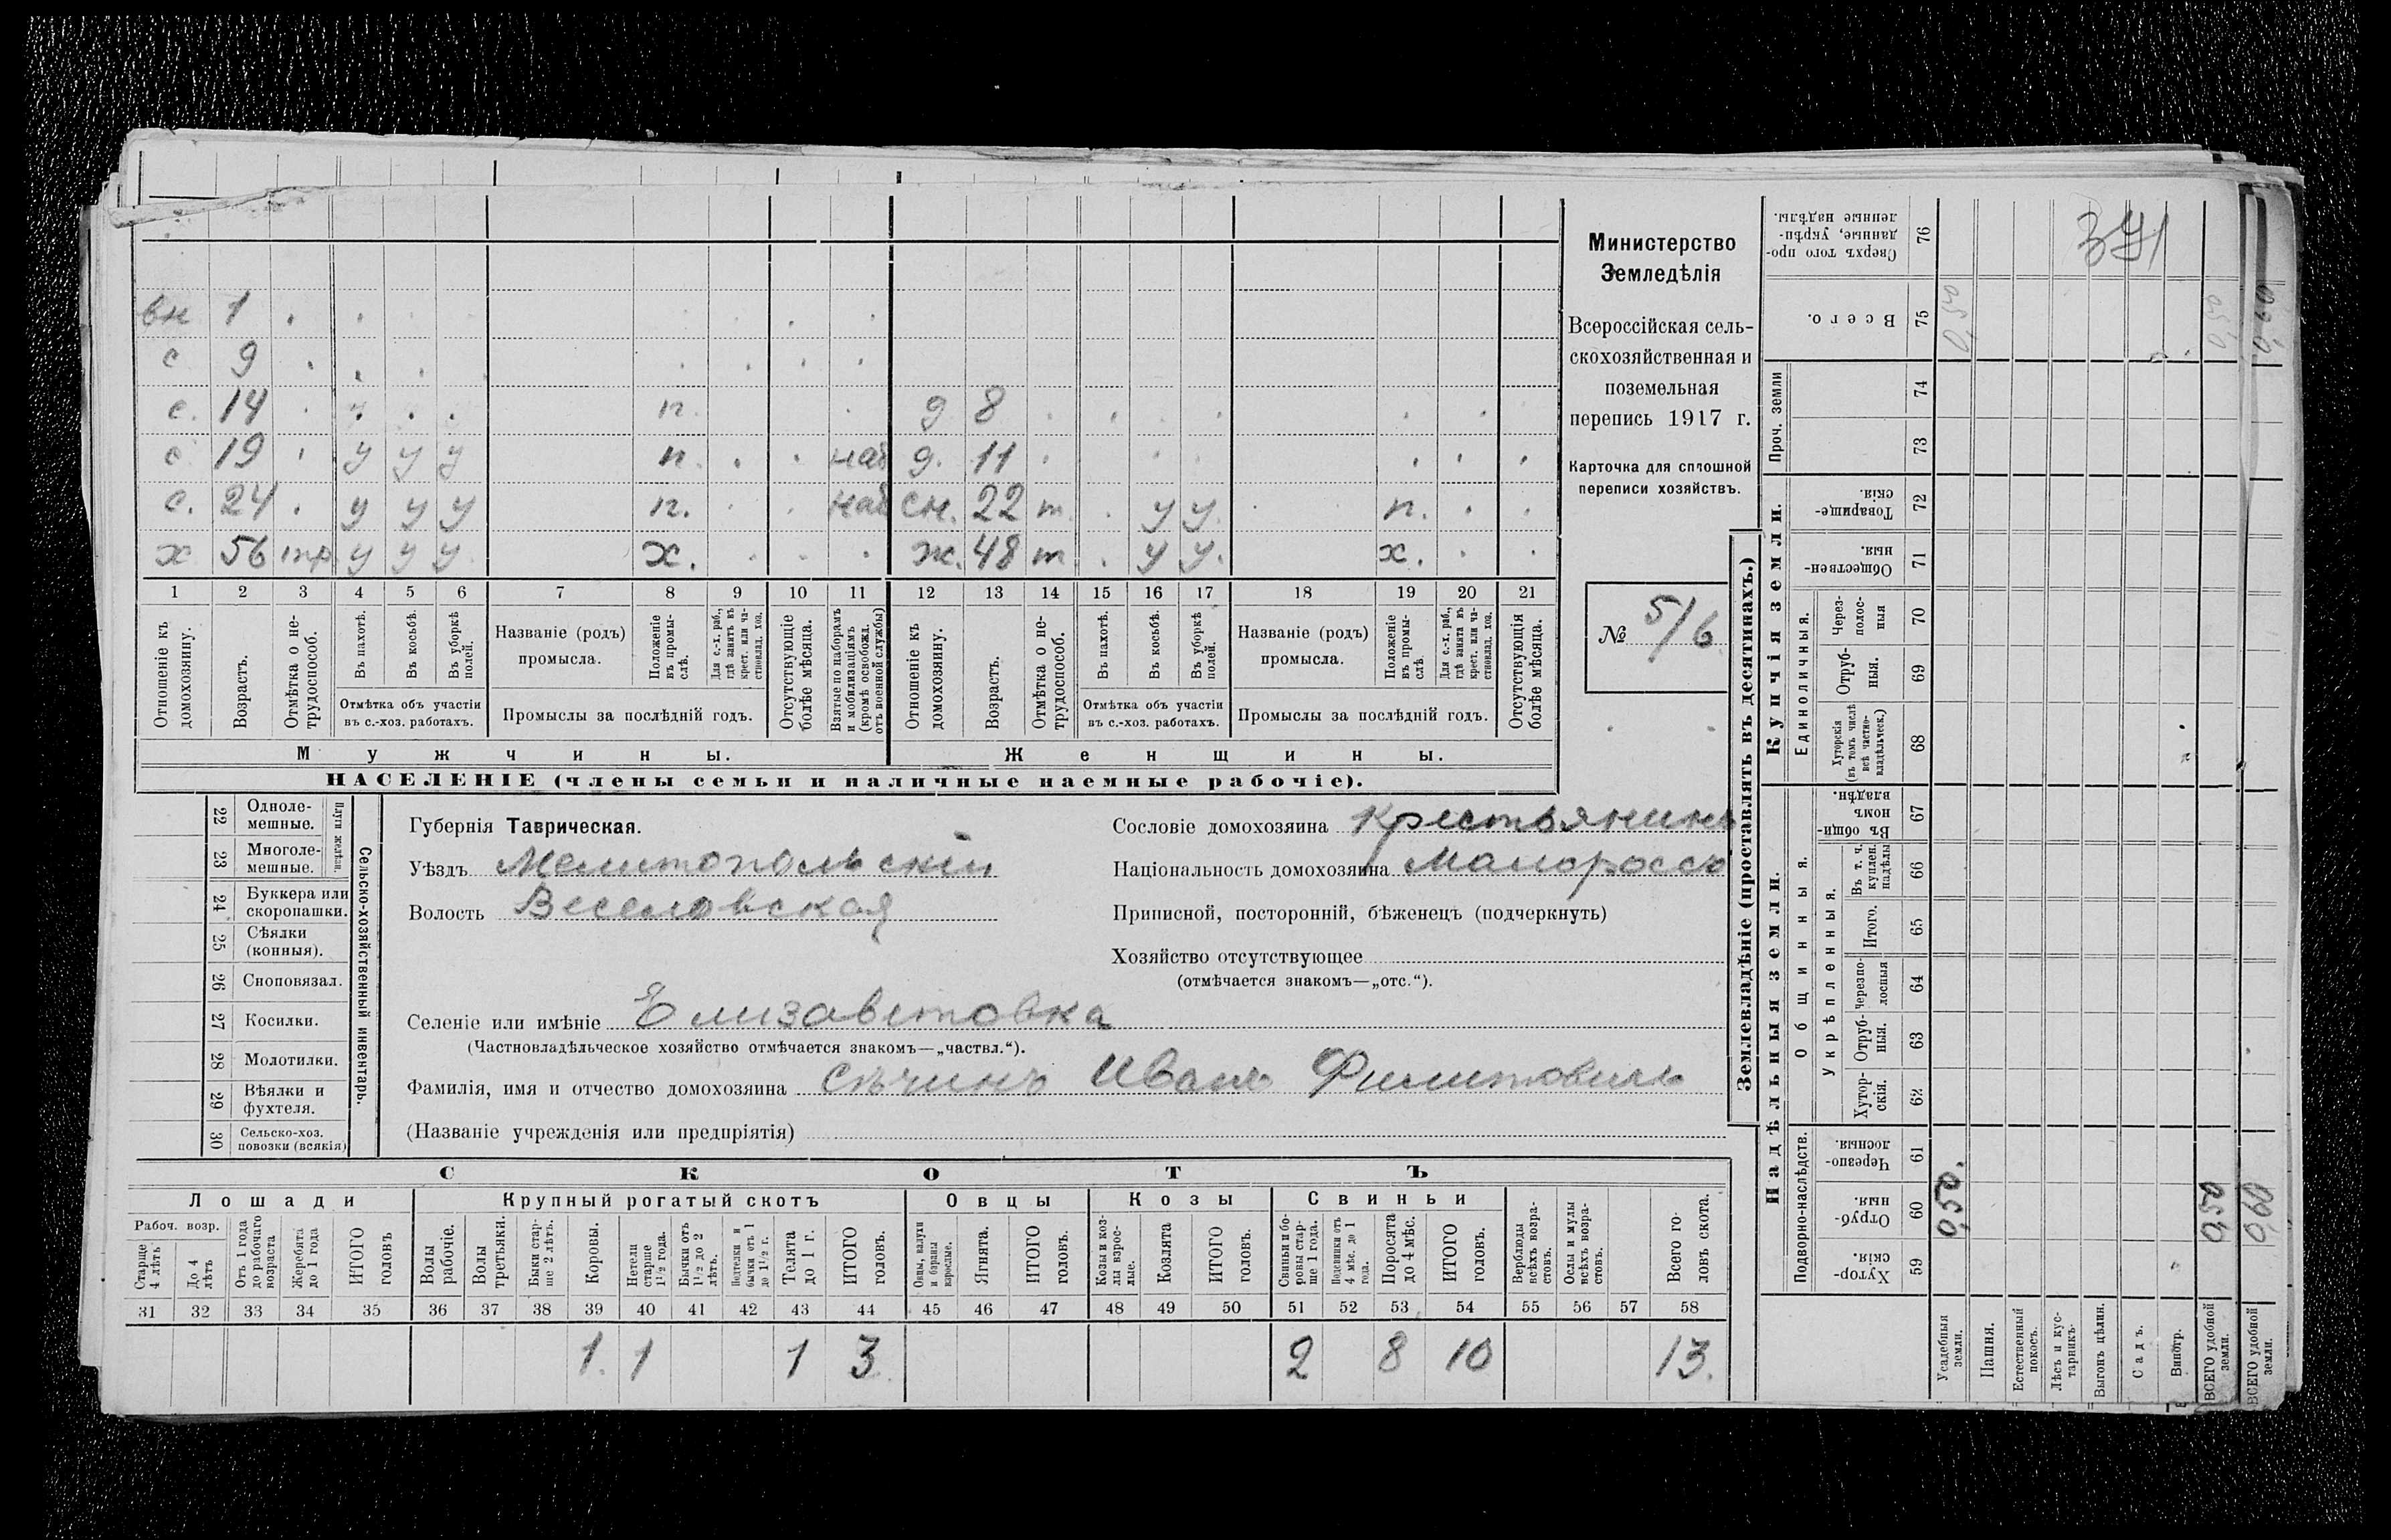 вн 1 . .
с 9 . . . . . . . .
с. 14 . . . . п. . д 8 . . . . . .
с 19 . у у у п. . . наб д. 11 . . . . . .
с. 24 . у у у п. . . наб сн. 22 т. . у у. п. . .
х 56 тр. у у у. х. . . . ж. 48 т . у у. х. . .
1 2 3 4 5 6 7 8 9 10 11 12 13 14 15 16 17 18 19 20 21
Отношеніе къ домохозяину.
Возрастъ.
Отмѣтка о нетрудоспособ.
Въ пахотѣ.
Въ косьбѣ.
Въ уборкѣ полей.
Отмѣтка объ участіи
въ с.-хоз. работахъ.
Названіе (родъ)
промысла.
Положеніе въ промыслѣ.
Для с.-х. раб., гдѣ занятъ въ крест. или частновлад. хоз.
Промыслы за послѣдній годъ.
Отсутствующіе болѣе мѣсяца.
Взятые по наборамъ и мобилизаціямъ (кромѣ освобожд. отъ военной службы)
Отношеніе къ домохозяину.
Возрастъ.
Отмѣтка о нетрудоспособ.
Въ пахотѣ.
Въ косьбѣ.
Въ уборкѣ полей.
Отмѣтка объ участіи
въ с.-хоз. работахъ.
Названіе (родъ)
промысла.
Положеніе въ промыслѣ.
Для с.-х. раб., гдѣ занята въ крест. или частновлад. хоз.
Промыслы за послѣдній годъ.
Отсутствующія болѣе мѣсяца.
Мужчины. Женщины.
НАСЕЛЕНІЕ (члены семьи и наличные наемные рабочіе).
Министерство
Земледѣлія
Всероссійская сель-
скохозяйственная и
поземельная
перепись 1917 г.
Карточка для сплошной
переписи хозяйствъ.
№ 5/6
22 Одноле-
мешные.
23 Многоле-
мешные.
Плуги желѣзн.
24 Буккера или
скоропашки.
25 Сѣялки
(конныя).
26 Сноповязал.
27 Косилки.
28 Молотилки.
29 Вѣялки и
фухтеля.
30 Сельско-хоз.
повозки (всякія)
Сельско-хозяйственный инвентарь.
Губернія Таврическая.
Уѣздъ Мелитопольскій
Волость Веселовская
Сословіе домохозяина крестьянинъ
Національность домохозяина Малороссъ
Приписной, посторонній, бѣженецъ (подчеркнуть)
Хозяйство отсутствующее
(отмѣчается знакомъ—„отс.“).
Селеніе или имѣніе Елизаветовка
(Частновладѣльческое хозяйство отмѣчается знакомъ—„частвл.“).
Фамилія, имя и отчество домохозяина Сѣчинъ Иванъ Филиповичъ
(Названіе учрежденія или предпріятія)
СКОТЪ
Лошади Крупный рогатый скотъ Овцы Козы Свиньи
Рабоч. возр.
Старше 4 лѣтъ
До 4 лѣтъ
Отъ 1 года до рабочаго возраста
Жеребята до 1 года
ИТОГО головъ
Волы рабочіе.
Волы третьяки.
Быки старше 2 лѣтъ.
Коровы.
Нетели старше 1½ года.
Бычки отъ 1½ до 2 лѣтъ.
Подтелки и бычки отъ 1 до 1½ г.
Телята до 1 г.
ИТОГО головъ.
Овцы, валухи и бараны взрослые.
Ягнята.
ИТОГО головъ.
Козы и козлы взрослые.
Козлята
ИТОГО головъ.
Свиньи и боровы старше 1 года.
Подсвинки отъ 4 мѣс. до 1 года.
Поросята до 4 мѣс.
ИТОГО головъ.
Верблюды всѣхъ возрастовъ.
Ослы и мулы всѣхъ возрастовъ.
Всего головъ скота.
31 32 33 34 35 36 37 38 39 40 41 42 43 44 45 46 47 48 49 50 51 52 53 54 55 56 57 58
1. 1 1 3 2 8 10 13.
Землевладѣніе (проставлять въ десятинахъ.)
Купчія земли.
Надѣльныя земли.
371
76 Сверхъ того проданные, укрѣпленные надѣлы.
75 Всего. 0,50 0,50 0,60
Проч. земли
74
73
72 Товарищескія.
71 Общественныя.
Единоличныя.
70 Черезполосныя
69 Отрубныя.
68 Хуторскія (въ томъ числѣ всѣ частновладѣльческ.)
Общинныя.
67 Въ общиномъ владѣн.
Укрѣпленныя.
66 Въ т. ч. куплен. надѣлы
65 Итого.
64 Черезполосныя
63 Отрубныя.
62 Хуторскія.
Подворно-наслѣдств.
61 Черезполосныя.
60 Отрубныя. 0,50. 0,50 0,60
59 Хуторскія.
Усадебныя земли.
Пашня.
Естественный покосъ.
Лѣсъ и кустарникъ.
Выгонъ цѣлин.
Садъ.
Виногр.
ВСЕГО удобной земли.
ВСЕГО удобной земли.